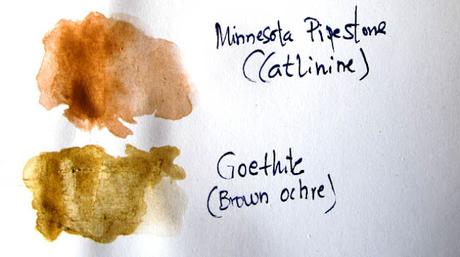 Minnesota Pipestone
(Catlinine)
Goethite
(Brown ochre)